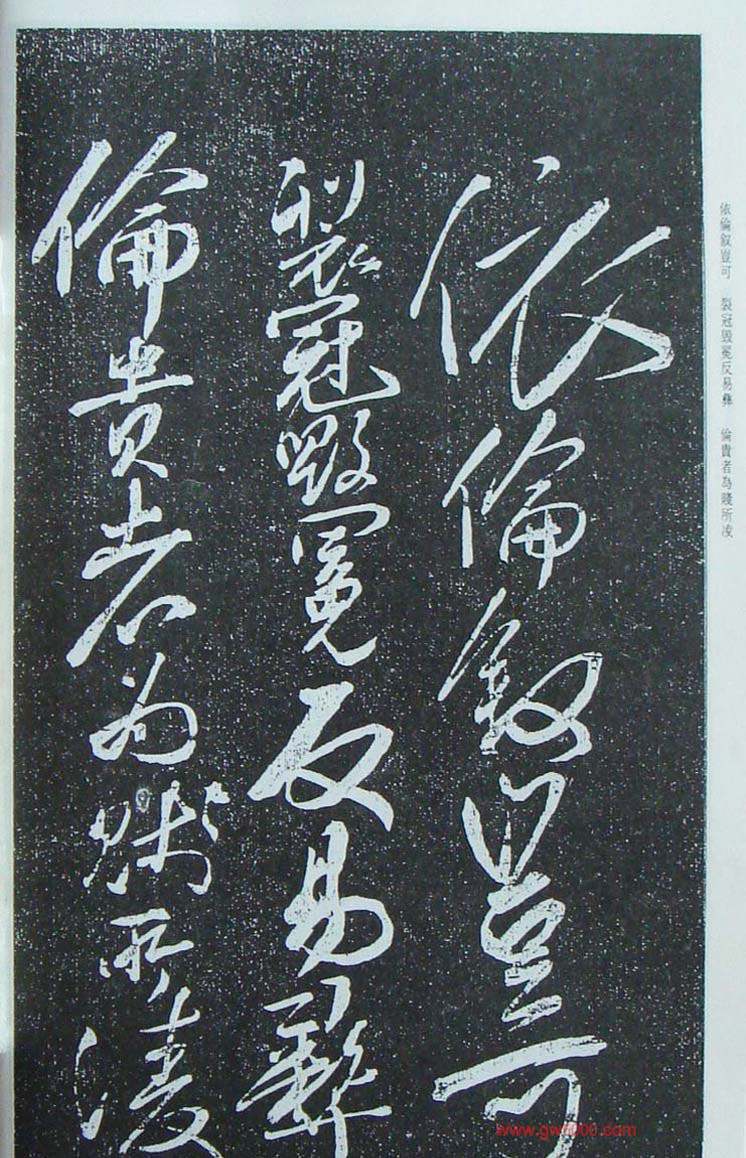 依倫敘豈可
裂冠毀冕反易彝
倫貴者為賤所凌
依倫敘豈可 裂冠毀冕反易彝 倫貴者為賤所凌
www.gw5000.com